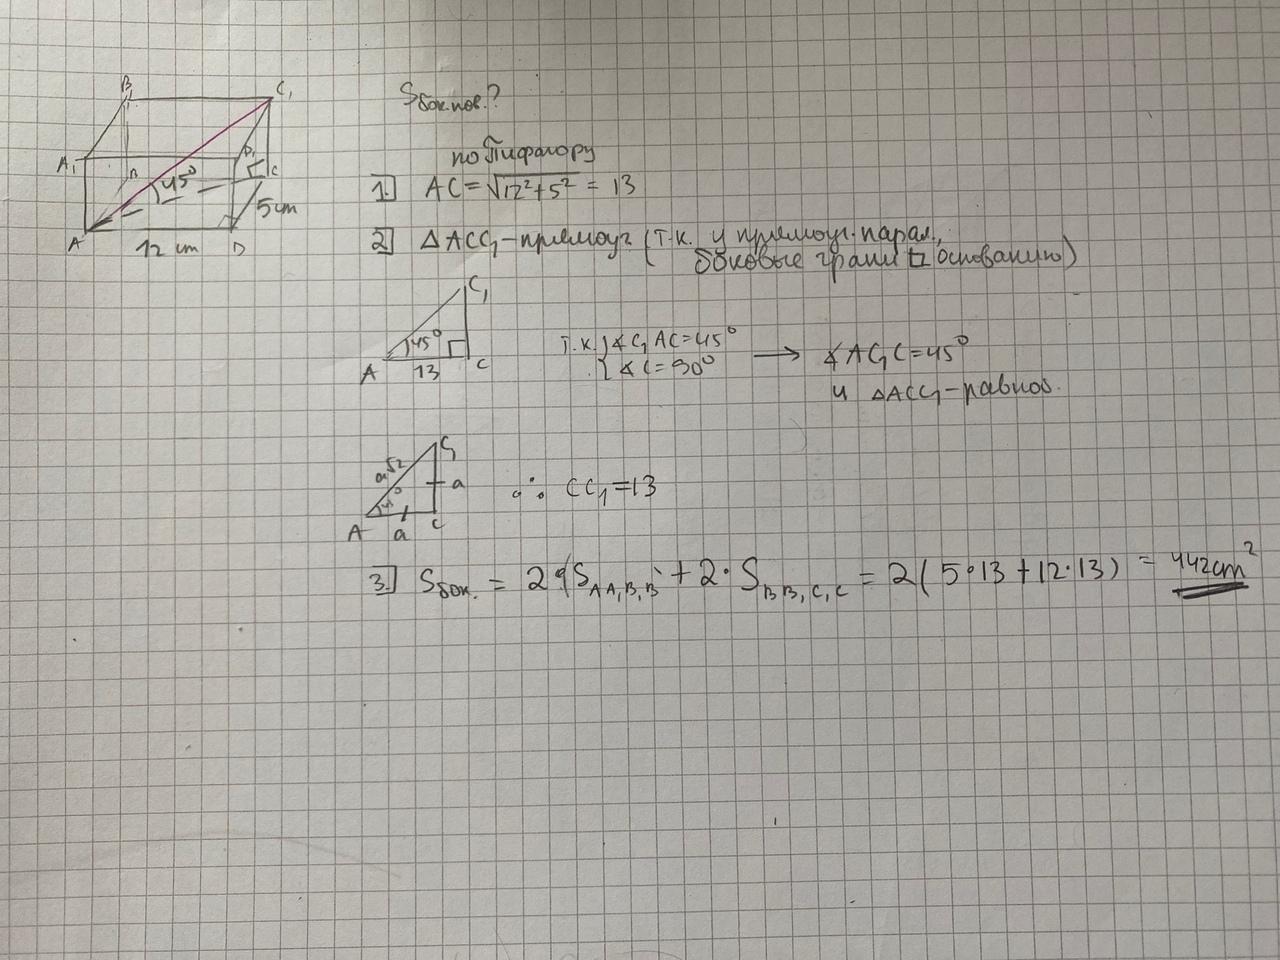 B₁
C₁
Sбок.пов.?
A₁
D₁
B
C
45°
5 cm
A
12 cm
D
по Пифагору
1. AC = √12²+5² = 13
2. △ACC₁ – прямоуг (т.к. у прямоуг. парал.,
боковые грани ⊥ основанию)
C₁
45°
A
13
C
т.к. { ∡C₁AC=45°
∡C=90° → ∡AC₁C=45°
и △ACC₁ – равноб.
C₁
a√2
a
45°
A
a
C
∴ CC₁=13
3. Sбок. = 2·(S AA₁B₁B + 2·S BB₁C₁C = 2(5·13+12·13) = 442cm²